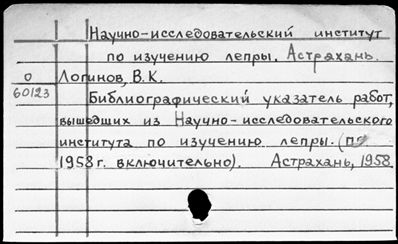 Научно-исследовательский институт
по изучению лепры. Астрахань.
О Логинов, В.К.
60123 Библиографический указатель работ,
вышедших из Научно-исследовательского
института по изучению лепры. (по
1958 г. включительно). Астрахань, 1958.